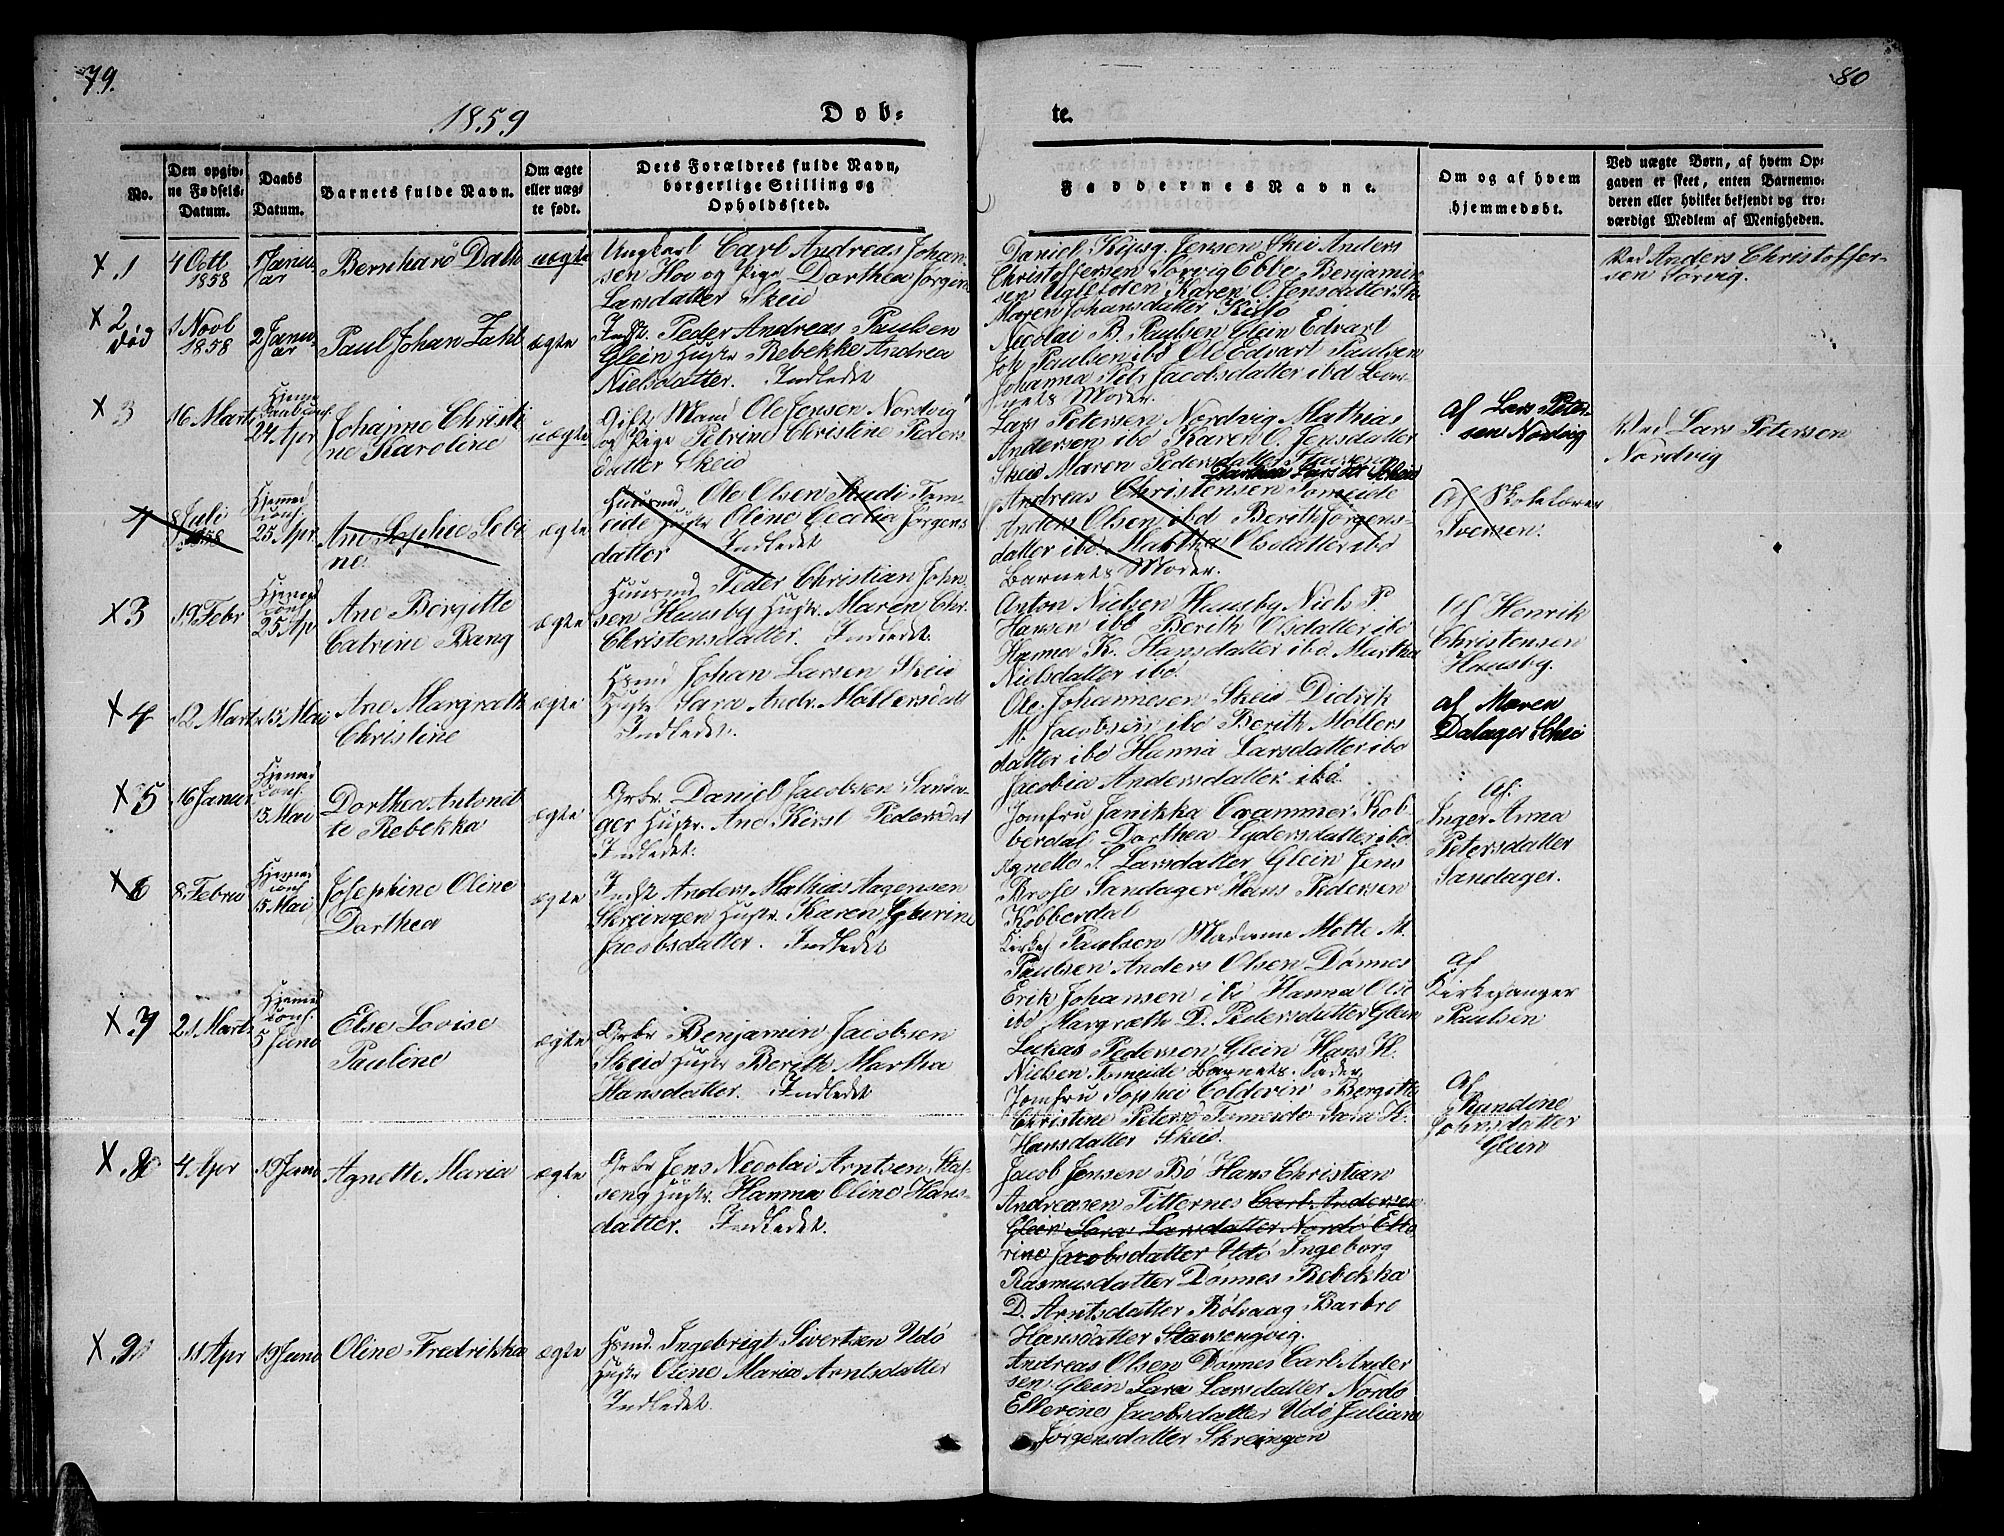 79.
80
1859
Døb-
te.
No.
Den opgiv-
ne Fødsels-
Datum.
Daabs
Datum.
Barnets fulde Navn.
Om ægte
eller uæg-
te født.
Dets Forældres fulde Navn,
borgerlige Stilling og
Opholdssted.
Faddernes Navne.
Om og af hvem
hjemmedøbt.
Ved uægte Børn, af hvem Op-
gaven er skeet, enten Barnemo-
deren eller hvilket bekjendt og tro-
værdigt Medlem af Menigheden.
X 1
4 Octb
1858
1 Janu-
ar
Bernhard Dahl
uægte
Ungkarl Carl Andreas Johan-
sen Hov og Pige Dorthea Jørgine
Larsdatter Skeid
Daniel Jensen Skei Anders
Christoffersen Sørvig Ebbe Benjamin-
sen Karen O. Jensdatter Sk.
Maren Johansdatter
Ved Anders Christoffer-
sen Sørvig.
X 2
død
1 Novb
1858
2 Janu-
ar
Paul Johan Zahl
ægte
Indst. Peder Andreas Paulsen
Glein Hustr Rebekke Andrea
Nielsdatter. Indledet
Nicolai B. Paulsen Glein Edvart
Joh Paulsen ibd Ole Edvart Paulsen
Johanna Petr Jacobsdatter ibd Bar-
nets Moder.
X 3
16 Marts
Hjemme
24 Apr
Johanne Christi
ne Karoline
uægte
Gift Mand Ole Jensen Nordvig
og Pige Petrine Christine Peders-
datter Skeid
Lars Petersen Nordvig Mathias
Andersen ibd Karen O. Jensdatter
Skeid Maren Pedersdatter
Dorthea Larsdt Skeid
af Lars Peter-
sen Nordvig
Ved Lars Petersen
Nordvig
4
8 Juli
1858
Hjemmed
conf.
25 Apr.
Ane Sophie Sebi
ne.
ægte
Huusmd Ole Olsen Rudi Tom-
eide Hustr Oline Cecilia Jørgens
datter Indledet
Andreas Christensen Tomeide
Anders Olsen ibd Berith Jørgens-
datter ibd. Martha Olsdatter ibd
Barnets Moder.
Af Skolelærer
Iversen.
X 3
19 Febr
Hjemmed
conf
25 Ap
Ane Birgitte
Catrine Bang
ægte
Huusmd Peder Christian John
sen Hausby Hustr. Maren Chr.
Christensdatter. Indledet.
Anton Nielsen Hausby Niels P.
Hansen ibd Berith Olsdatter ibd
Hanna K. Hansdatter ibd Martha
Nielsdatter ibd.
Af Henrik
Christensen
Hausby.
X 4
12 Marts
15 Mai
Ane Margrethe
Christine
ægte
Hsmd Johan Larsen Skeid
Hustr Sara Andr. Møllersdatt
Indledet.
Ole Johannesen Skeid Didrik
M. Jacobsen ibd Berith Møllers
datter ibd Hanna Larsdatter ibd
Jacobia Andersdatter ibd.
af Maren
Dalager Skei
X 5
16 Januar
Hjemmed
conf.
15 Mai
Dorthea Antonet
te Rebekka
ægte
Grbr. Daniel Jacobsen Sanda-
ger Hustr. Ane Kirst Pedersdat
Indledet.
Jomfru Janikka Crammer Kob-
berdal Dorthea Lydersdatter ibd
Agnette S Larsdatter Glein Jens
Krose Sandager Hans Pedersen
Kobberdal
Af
Inger Anna
Petersdatter
Sandager.
X 6
8 Febru
Hjemmed
conf
15 Mai
Josephine Oline
Dorthea
ægte
Indst Anders Mathias Aagensen
Skreingen Hustr. Karen Cathrine
Jacobsdatter. Indledet
Kirkes Paulsen Madame Mette M.
Paulsen Anders Olsen Dønnes
Erik Johansen ibd Hanna Olsd
ibd Margreth D. Pedersdatter Glein
af
Kirkesanger
Paulsen
X 7
21 Marts
Hjemmed
conf.
5 Juno
Else Lovise
Pauline
ægte
Grbr Benjamin Jacobsen
Skeid Hustr Berith Martha
Hansdatter. Indledet
Lukas Pedersen Glein Hans H.
Nielsen Tomeide Barnets Fader
Jomfru Sophie Coldevin Bergitte
Christine Petersd Tomeide Sara K.
Hansdatter Skeid.
Af
Randine
Johnsdatter
Glein
X 8
4 Apr
19 Juno
Agnette Maria
ægte
Grbr Jens Nicolai Arntsen Stav-
seng Hustr. Hanna Oline Hans-
datter. Indledet.
Jacob Jensen Bø Hans Christian
Andreasen Titternes Carl Andersen
Glein Sara Larsdatter Nordø Elle
rine Jacobsdatter Udø Ingeborg
Rasmusdatter Dønnes Rebekka
D. Arntsdatter Rølvaag Barbro
Hansdatter Stavsengvig.
X 9
11 Apr
19 Juno
Oline Fredrikka
ægte
Hsmd. Ingebrigt Sivertsen Udø
Hustr Oline Maria Arntsdatter
Indledet.
Andreas Olsen Dønnes Carl Ander
sen Glein Sara Larsdatter Nordø
Ellerine Jacobsdatter Udø Juliane
Jørgensdatter Skreingen